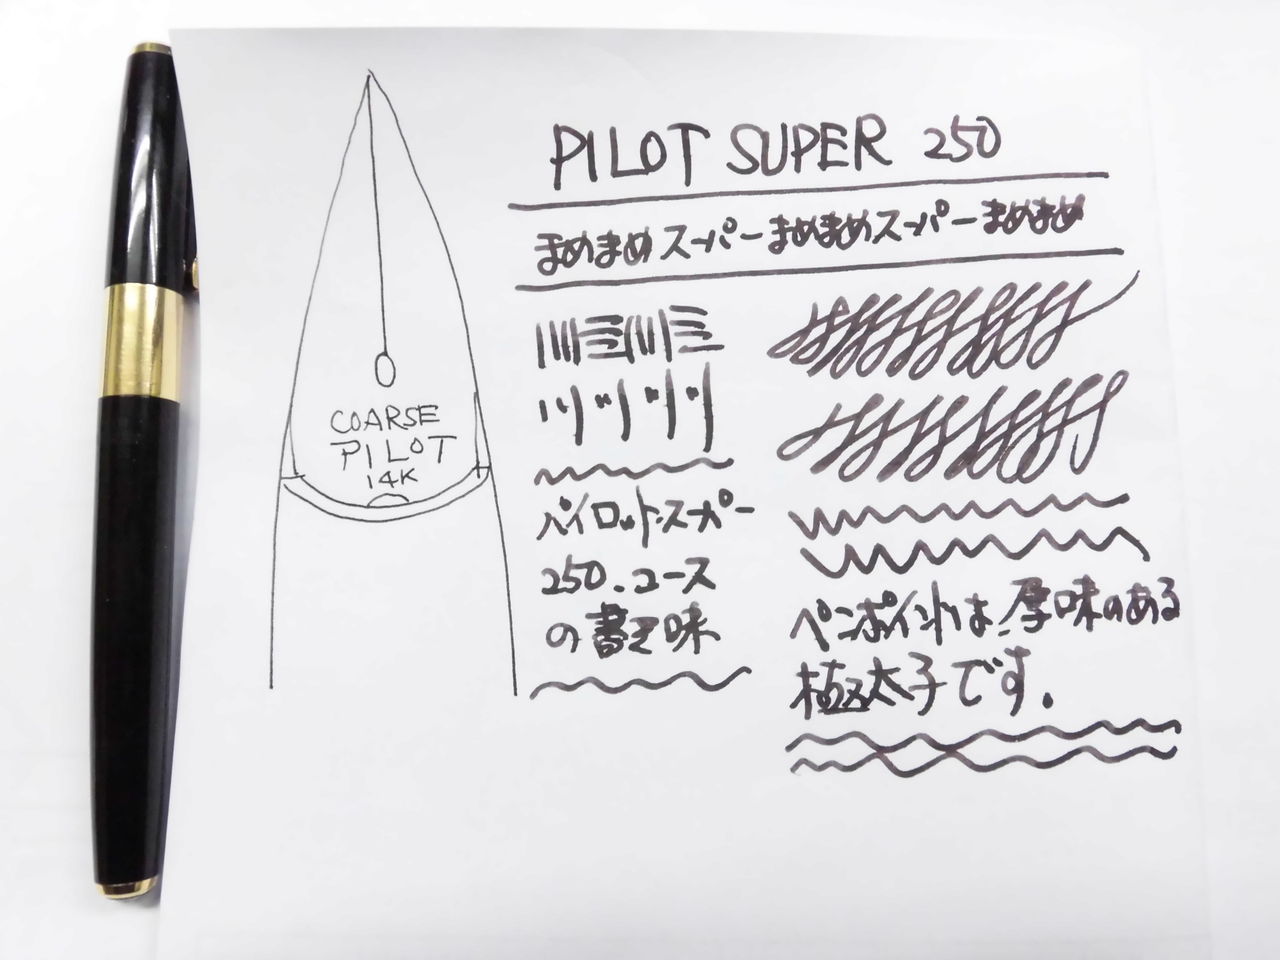 PILOT SUPER 250
まめまめスーパーまめまめスーパーまめまめ
COARSE
PILOT
14K
パイロット・スーパー
250.コース
の書き味
ペンポイントは、厚味のある
極太子です.